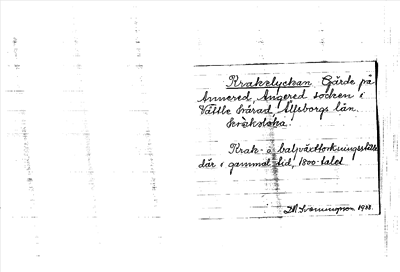 Kraklyckan. Gärde på
Annered, Angered socken i
Vättle härad Älfsborgs län.
Krak- o. baljväxttorkningsställe
där i gammal tid, 1800-talet
1928.